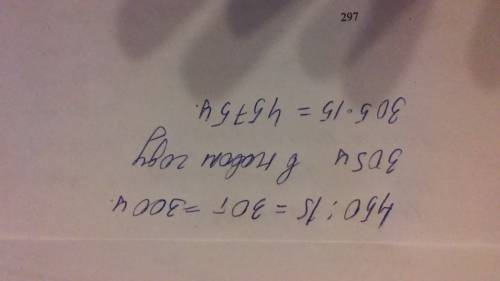 297
450 : 15 = 30т = 300ц
305ц в новом году
305·15 = 4575ц